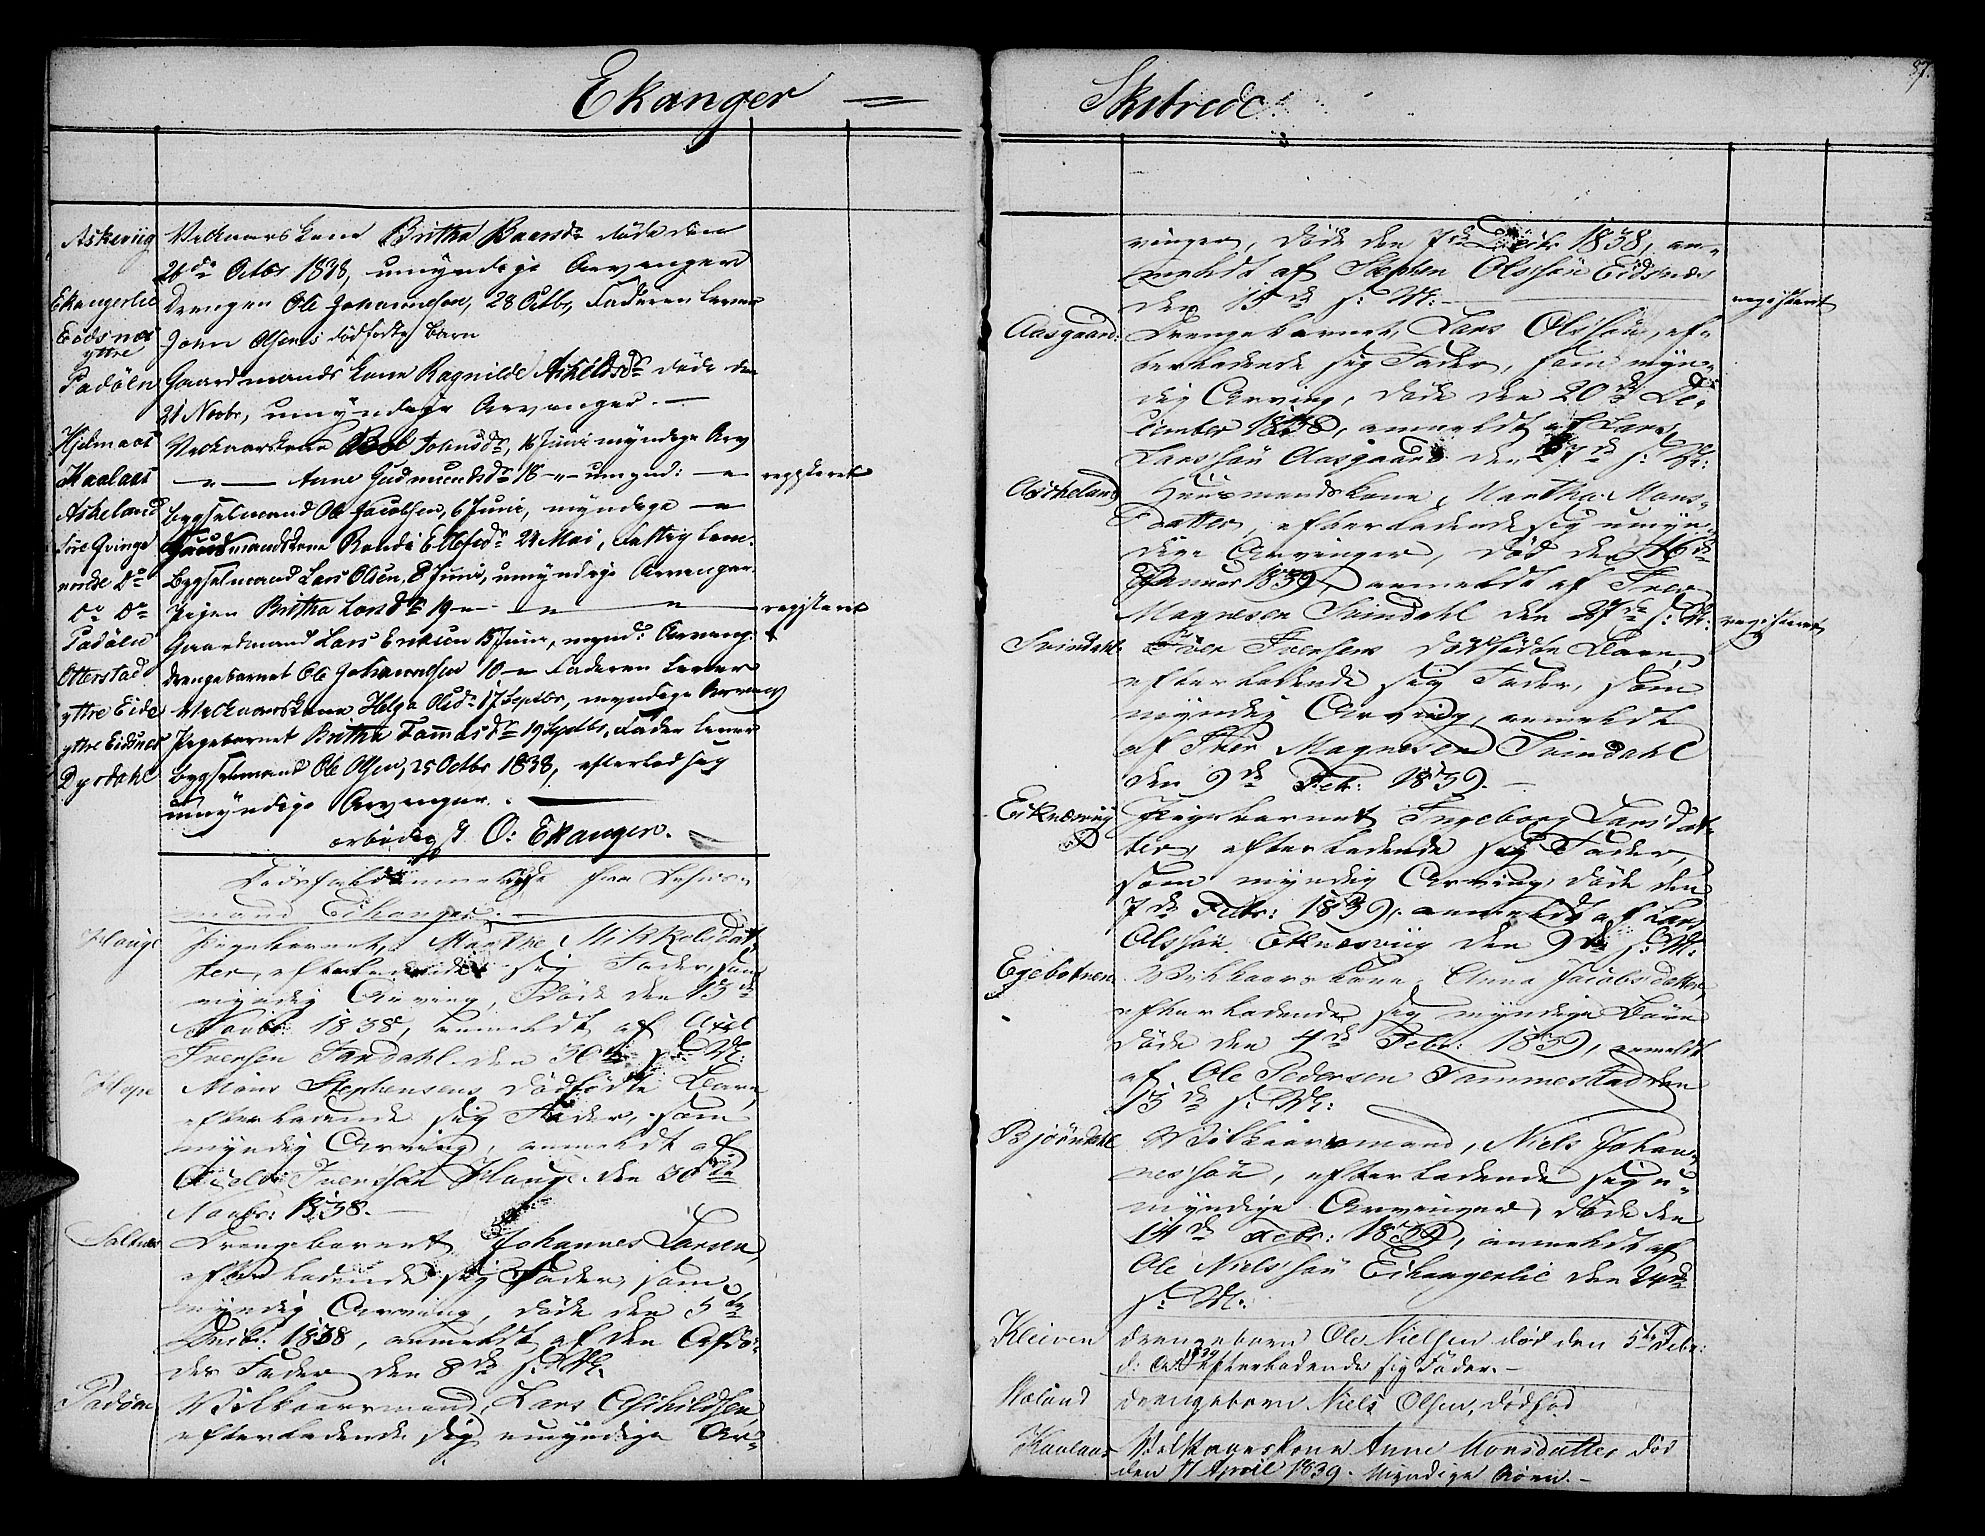 Ekanger =
Askeviig Velkaarskone Britha Baarsdr døde den
26de Octbr 1838, umyndige Arvinger
Ekangerlie Drengen Ole Johannesen, 28 Octb, Faderen lever
Eidsnæs yttre John Olsens dødfødte barn
Padølen Gaardmandskone Ragnilde Askeldsdr døde den
21 Novbr, umyndige Arvinger. —
Hjelmaas Velkaarskone Johnsdr, 16 Juni myndige Arv
Kaalaas —"— Anne Gudmundsdr 18 —"— umynd: —"— registeret
Askeland bygselmand Ole Jacobsen, 6 Juni, myndige —"—
øvre Qvinge Huusmandskone Randi Ellefsdr 24 Mai, Fattiglem.
nordre Do bygselmand Lars Olsen, 8 Juni, umyndige Arvinger.
Do Do Pigen Britha Larsdr 19 —"— —"— —"— registeret
Padølen Gaardmand Lars Eriksen 15 Juni, mynd: Arving.
Otterstad drengebarnet Ole Johannesen 10 —"— Faderen lever
yttre Eide Velkaarskone Helga Olsdr 17 Septbr, myndige Arving
yttre Eidsnes Pigebarnet Britha Tommasdr 19 Septbr, Fader lever
Dyrdahl bygselmand Ole Olsen, 25 Octbr 1838, efterlod sig
umyndige Arvinger.
ærbødigst O: Ekanger.
Dødsfaldsanmeldelse fra Lehns-
mand Eikanger. —
Hauge Pigebarnet, Marthe Mikkelsdat-
ter, efterladende sig Fader, som
myndig Arving, døde den 13de
Novbr 1838, anmeldt af Axel
Iversen Tandahl den 30te s: M:
Hope Mons Stephensens dødfødte Barn,
efterladende sig Fader, som
myndig Arving, anmeldt af
Iverssøn Hauge den 30te
Novbr: 1838. —
Saltnes Drengebarnet Johannes Larsen,
efterladende sig Fader, som
myndig Arving, døde den 5te
Decbr: 1838, anmeldt af den Afdø-
des Fader den 8de s: M:
Padølen Vilkaarsmand, Lars Aschildsen,
efterladende sig umyndige Ar-
Skibrede.
87.
vinger, døde den 7de Decbr 1838, an-
meldt af Stephen Olssøn Eidsnæs
den 15de s: M: — registeret
Aasgaard: Drengebarnet, Lars Olssøn, ef-
terladende sig Fader, som myn-
dig Arving, døde den 20de De-
cember 1838, anmeldt af Lars
Larssøn Aasgaard den 27de s: M:
Ascheland Huusmandskone, Martha Mons-
datter, efterladende sig umyn-
dige Arvinger, død den 16de
Januar 1839, anmeldt af Iver
Magnesen Svindahl den 27de s: M: registeret
Svindahl Iver Iversens dødfødte Barn,
efterladende sig Fader, som
myndig Arving, anmeldt
af Iver Magnesen Svindahl
den 9de Febr: 1839. —
Eiknæsviig Pigebarnet Ingeborg Larsdat-
ter, efterladende sig Fader,
som myndig Arving, døde den
7de Febr: 1839, anmeldt af Lars
Olssøn Eknæsviig den 9de s: M:
Egebotnen Vilkaarskone, Anna Jacobsdatter,
efterladende sig myndige Børn
døde den 4de Febr: 1839, anmeldt
af Ole Pedersen Tammestad den
13de s: M:
Bjørndahl Vilkaarsmand, Niels Johan-
nessøn, efterladende sig u-
myndige Arvinger, døde den
14de Febr: 1839, anmeldt af
Ole Nielssøn Eikangerlie den
s: M:
Kleiven drengebarn Ole Nielsen død den 5te Febr:
1839 efterladende sig Fader. —
Næland drengebarn Niels Olsen, dødfød
Kaalaas Vilkaarskone Anne Monsdatter død
den 17 April 1839. Myndige Børn. —